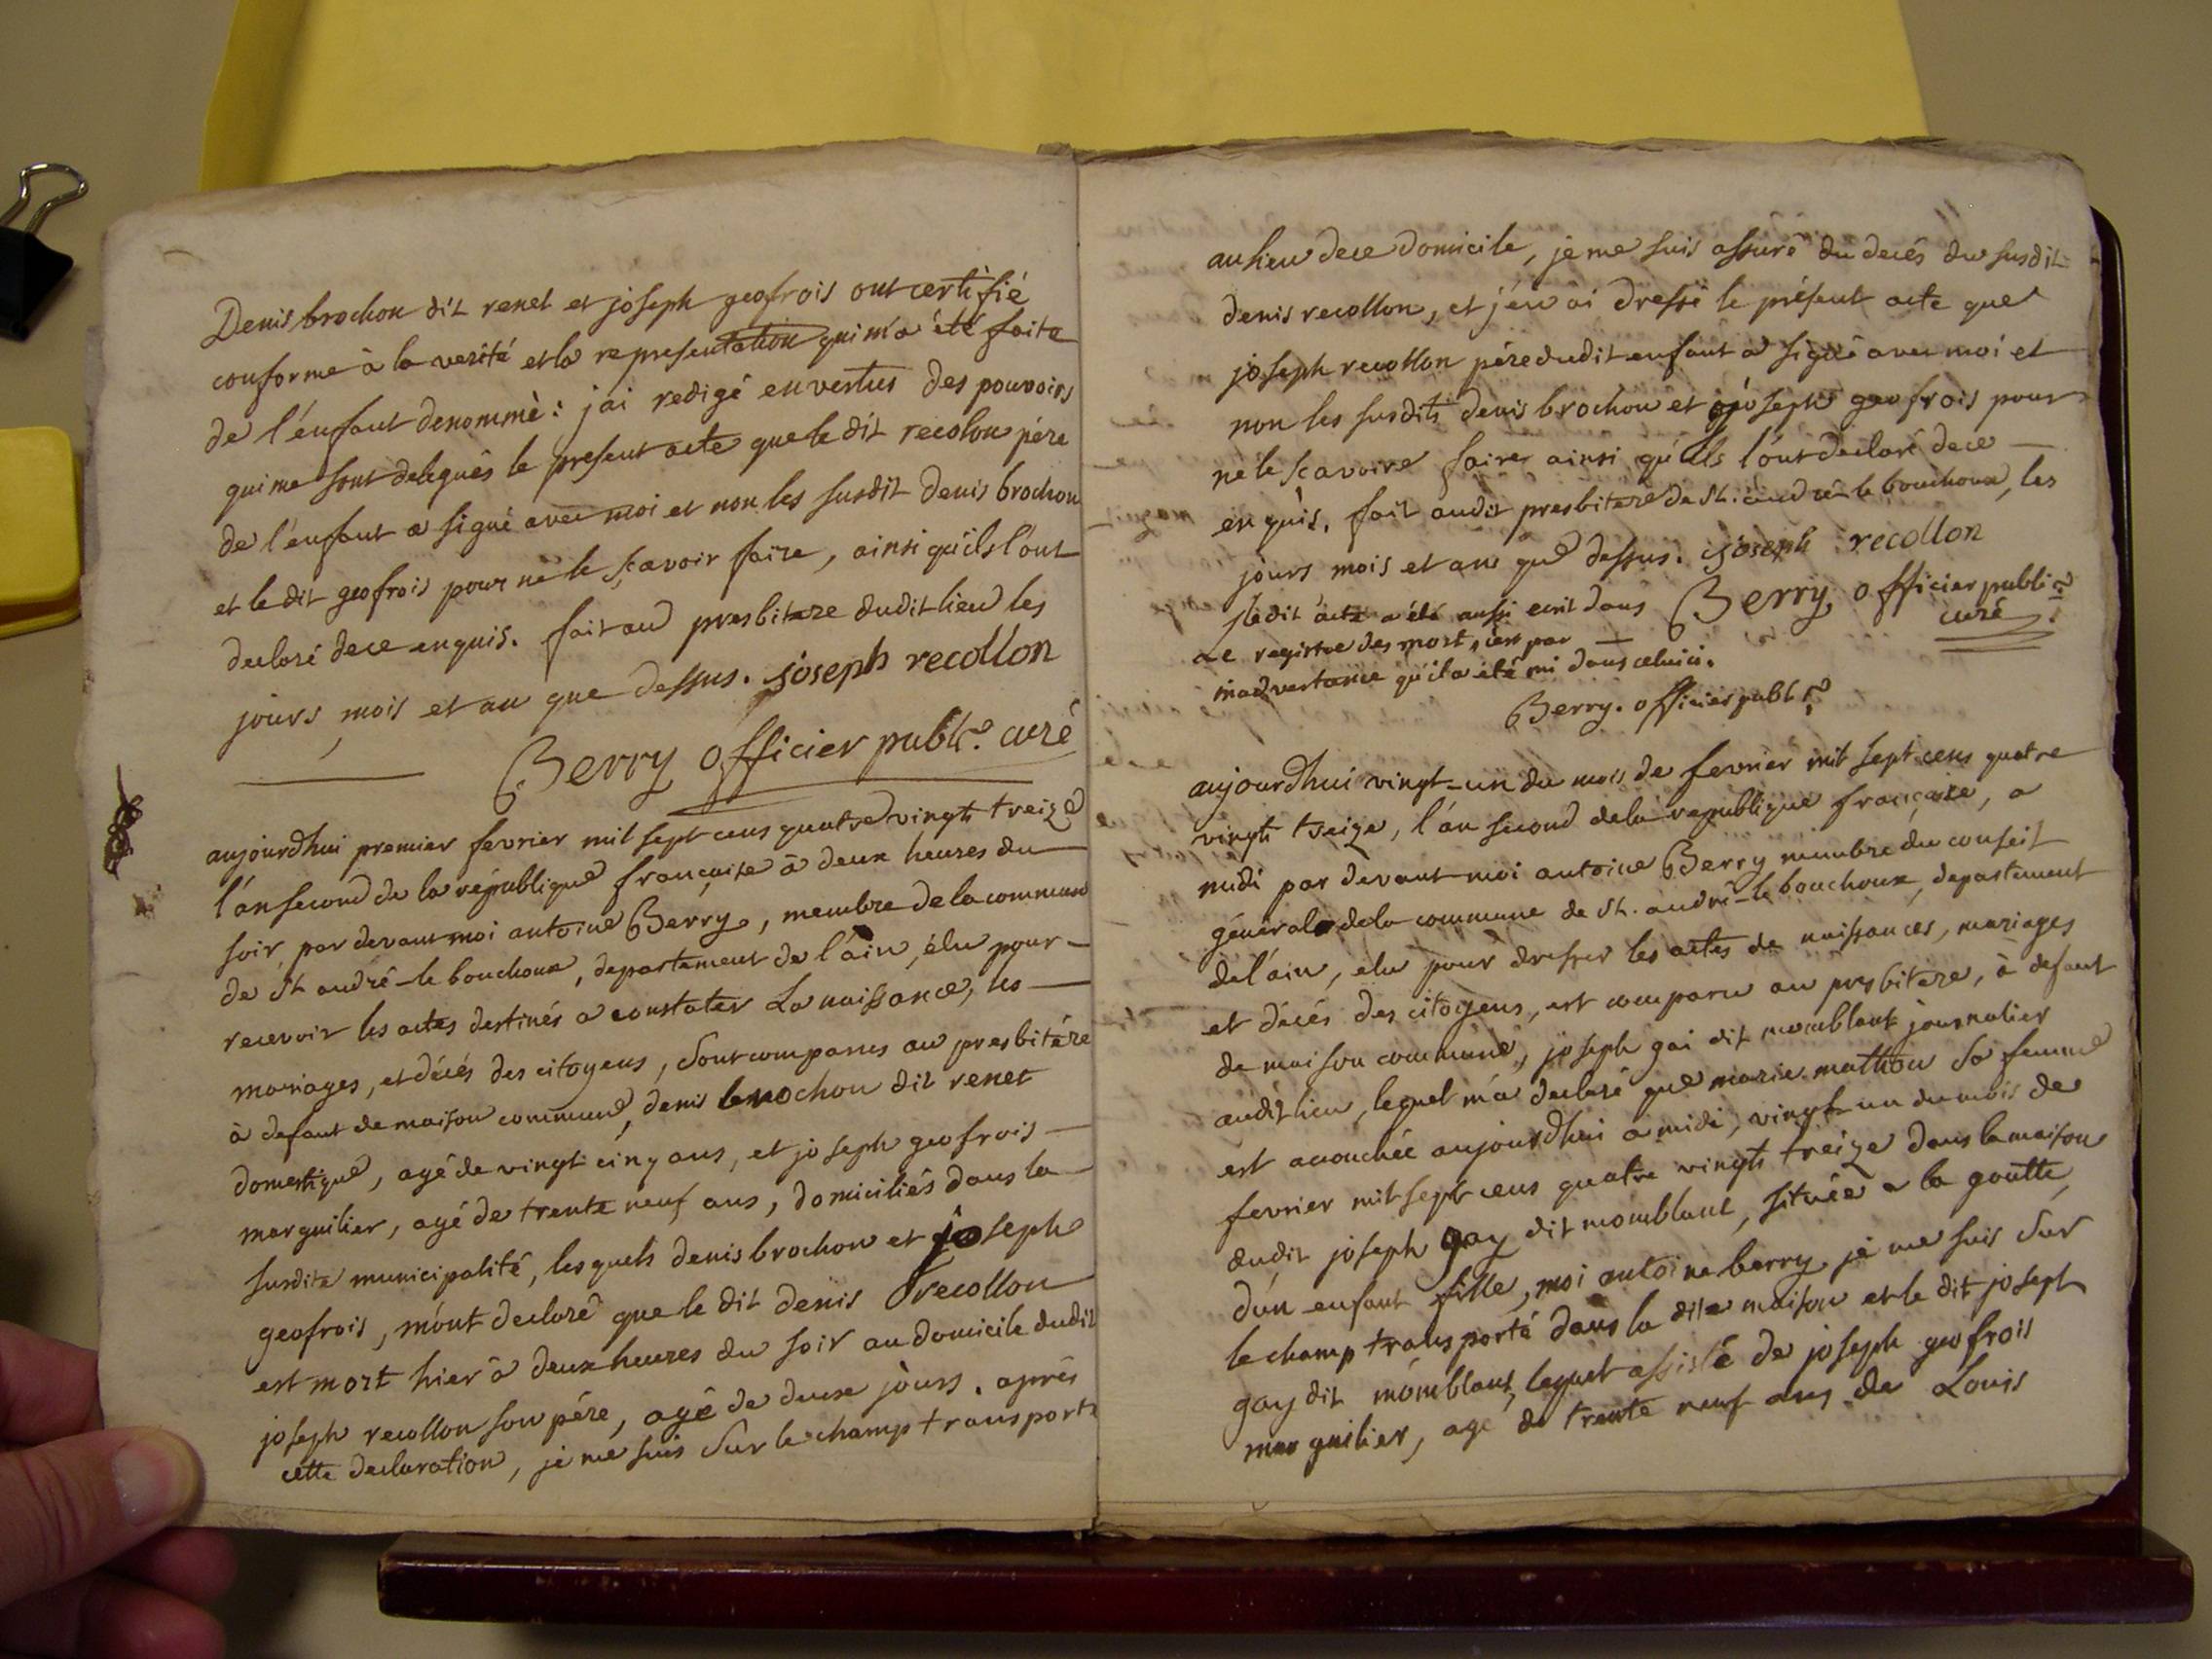 Denis brochon dit renet et joseph geofrois ont certifié
conforme à la verité et la representation qui m'a été faite
de l'énfant denommè : j'ai redigé en vertus des pouvoirs
qui me sont delegués le present acte que le dit recolon pére
de l'énfant a signé avec moi et non les susdit denis brochon
et le dit geofrois pour ne le sçavoir faire, ainsi qu'ils l'ont
declaré de ce enquis. fait au presbitere dudit lieu les
jours, mois et an que dessus. joseph recollon
Berry officier public. curé
aujourdhui premier fevrier mil sept cens quatre vingts treize
l'án second de la républiqué française à deux heures du
soir, par devant moi antoine Berry, membre de la commune
de St andré-le bouchoux, departement de l'áin, élu pour
recevoir les actes destinés a constater La naissance, les
mariages, et décés des citoyens, sont comparus au presbitére
à defaut de maison commune, denis brochon dit renet
domestiqué, agé de vingt cinq ans, et joseph geofrois
marguilier, agé de trente neuf ans, domiciliés dans la
susdite municipalité, lesquels denis brochon et joseph
geofrois, m'ónt declaré que le dit denis recollon
est mort hier à deux heures du soir au domicile dudit
joseph recollon son pére, agé de deux jòurs. aprés
cette declaration, je me suis sur le champ transporté
au lieu de ce domicile, je me suis assuré du decés du susdit
denis recollon, et j'én ai dressé le présent acte que
joseph recollon pére dudit enfant a signé avec moi et
non les susdits denis brochon et joseph geofrois pour
ne le scavoire faire ainsi qu'ils l'ónt declaré de ce
enquis. fait audit presbitere de St. andré-le bouchoux, les
jours mois et ans que dessus. joseph recollon
ledit acte a été aussi ecrit dans Berry officier public
Le registre des mort, c'est par curé
inadvertance qu'il a été mi dans celuici.
Berry. officier public
aujourdhui vingt-un du mois de fevrier mil sept cens quatre
vingts treize, l'án second de la republique française, a
midi par devant moi antoine Berry membre du conseil
général de la commune de St. andré-le bouchoux, departement
de l'áin, elu pour dresser les actes de naissances, mariages
et décés des citoyens, est comparu au presbitere, à defaut
de maison commune, joseph gai dit momblant journalier
audit lieu, lequel m'a declaré que marie mathon sa femme
est acouchée aujourdhui a midi, vingt-un du mois de
fevrier mil sept cens quatre vingts treize dans la maison
dudit joseph gay dit momblant, située a la goutte,
d'ún enfant fille, moi antoine berry je me suis sur
le champ transporté dans la dite maison et le dit joseph
gay dit momblant, lequel assisté de joseph geofrois
marguilier, agé de trente neuf ans de Louis